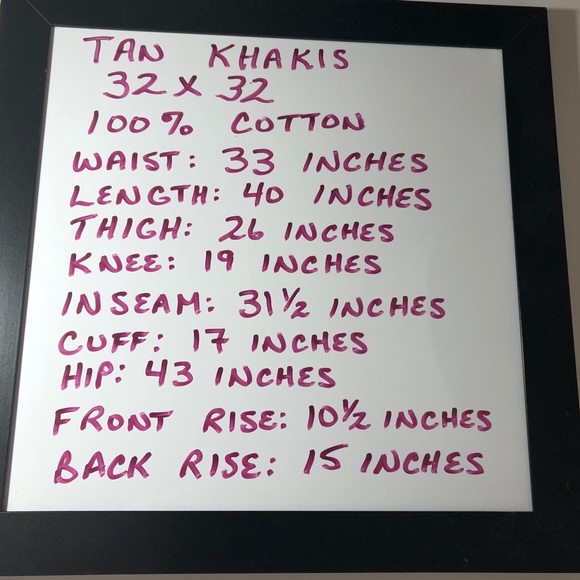 TAN KHAKIS
32 x 32
100% COTTON
WAIST: 33 INCHES
LENGTH: 40 INCHES
THIGH: 26 INCHES
KNEE: 19 INCHES
INSEAM: 31 1/2 INCHES
CUFF: 17 INCHES
HIP: 43 INCHES
FRONT RISE: 10 1/2 INCHES
BACK RISE: 15 INCHES